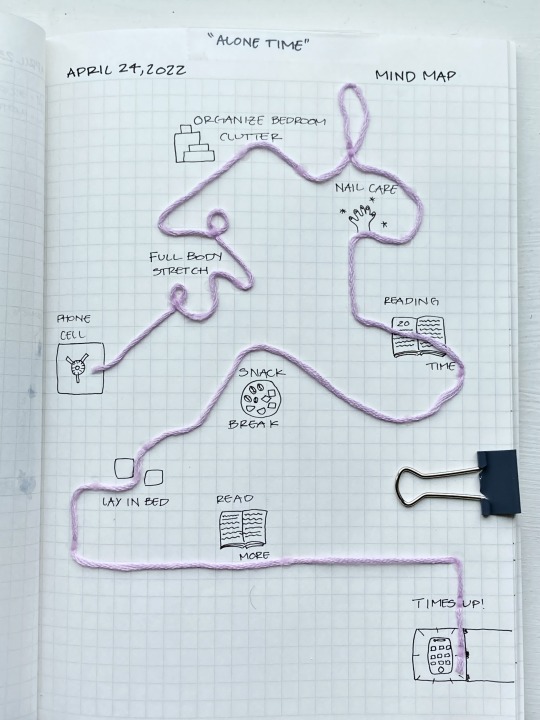 "ALONE TIME"
APRIL 24, 2022
MIND MAP
ORGANIZE BEDROOM
CLUTTER
NAIL CARE
FULL BODY
STRETCH
READING
20
TIME
PHONE
CELL
SNACK
BREAK
LAY IN BED
READ
MORE
TIMES UP!